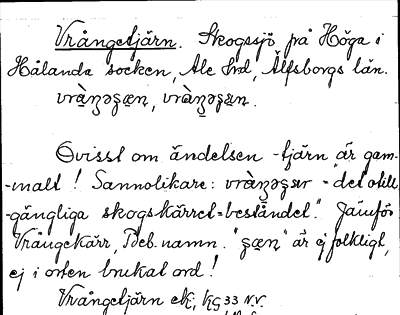 Vrångetjärn. Skogssjö på Höga i
Hålanda socken, Ale hd, Älfsborgs län.
vràŋəʂæn, vràŋəʂæn.
Ovisst om ändelsen -tjärn är gam-
-malt! Sannolikare: vràŋəʂær - "det otill-
-gängliga skogskärret=beståndet." Jämför
Vrångekärr, Beb. namn. "ʂæn" är ej folkligt,
ej i orten brukat ord!
Vrångetjärn ek, KG 33 N.V.